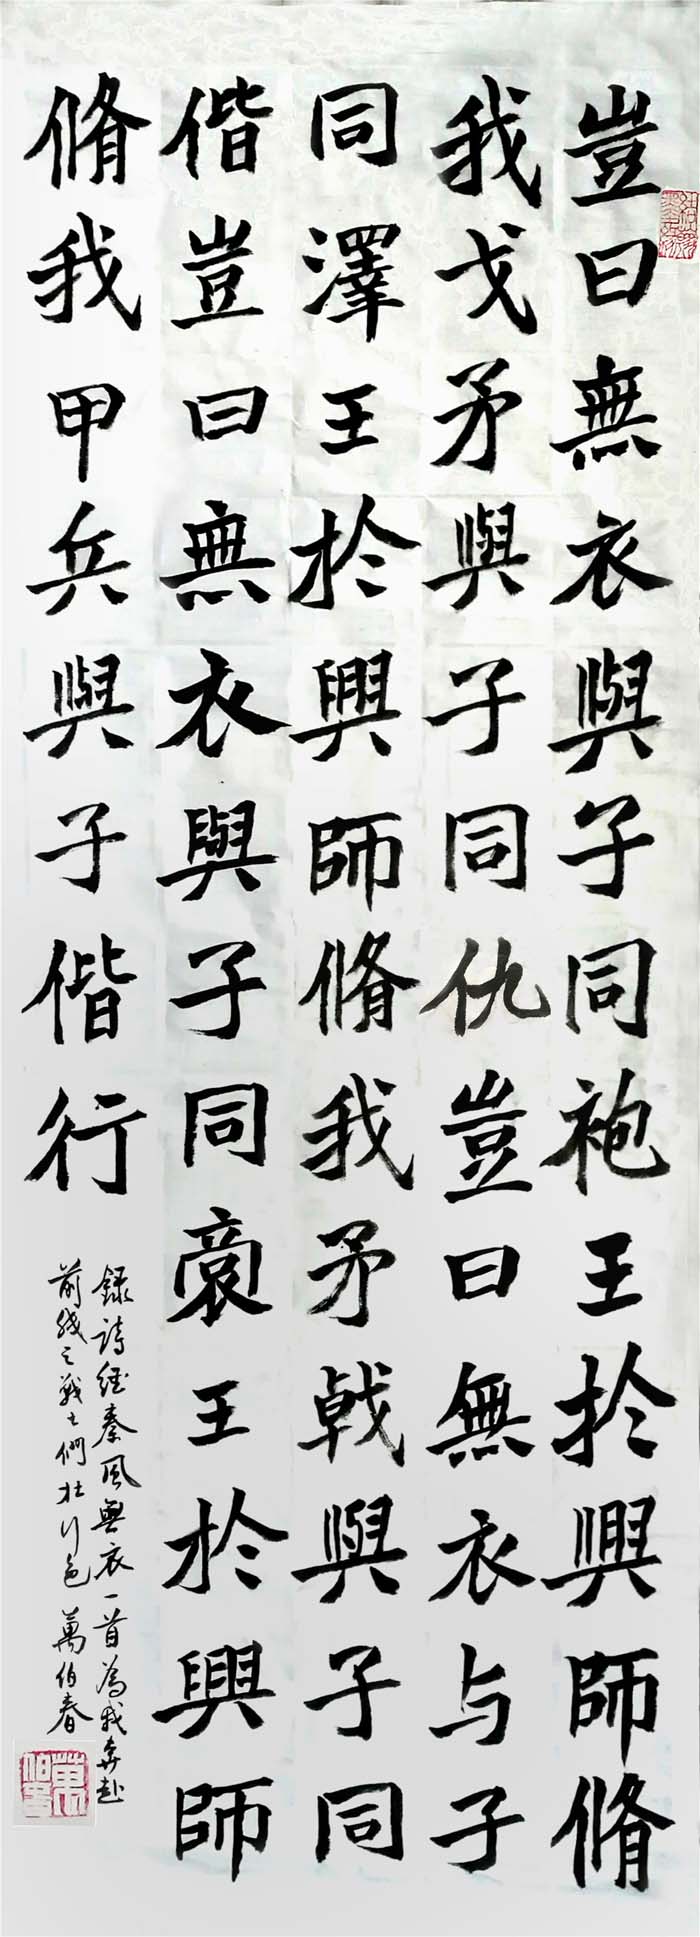 豈曰無衣與子同袍王於興師脩
我戈矛與子同仇豈曰無衣与子
同澤王於興師脩我矛戟與子同
偕豈曰無衣與子同裳王於興師
脩我甲兵與子偕行
錄詩經秦風無衣一首為我奔赴
前綫之戰士們壯行色 萬伯春